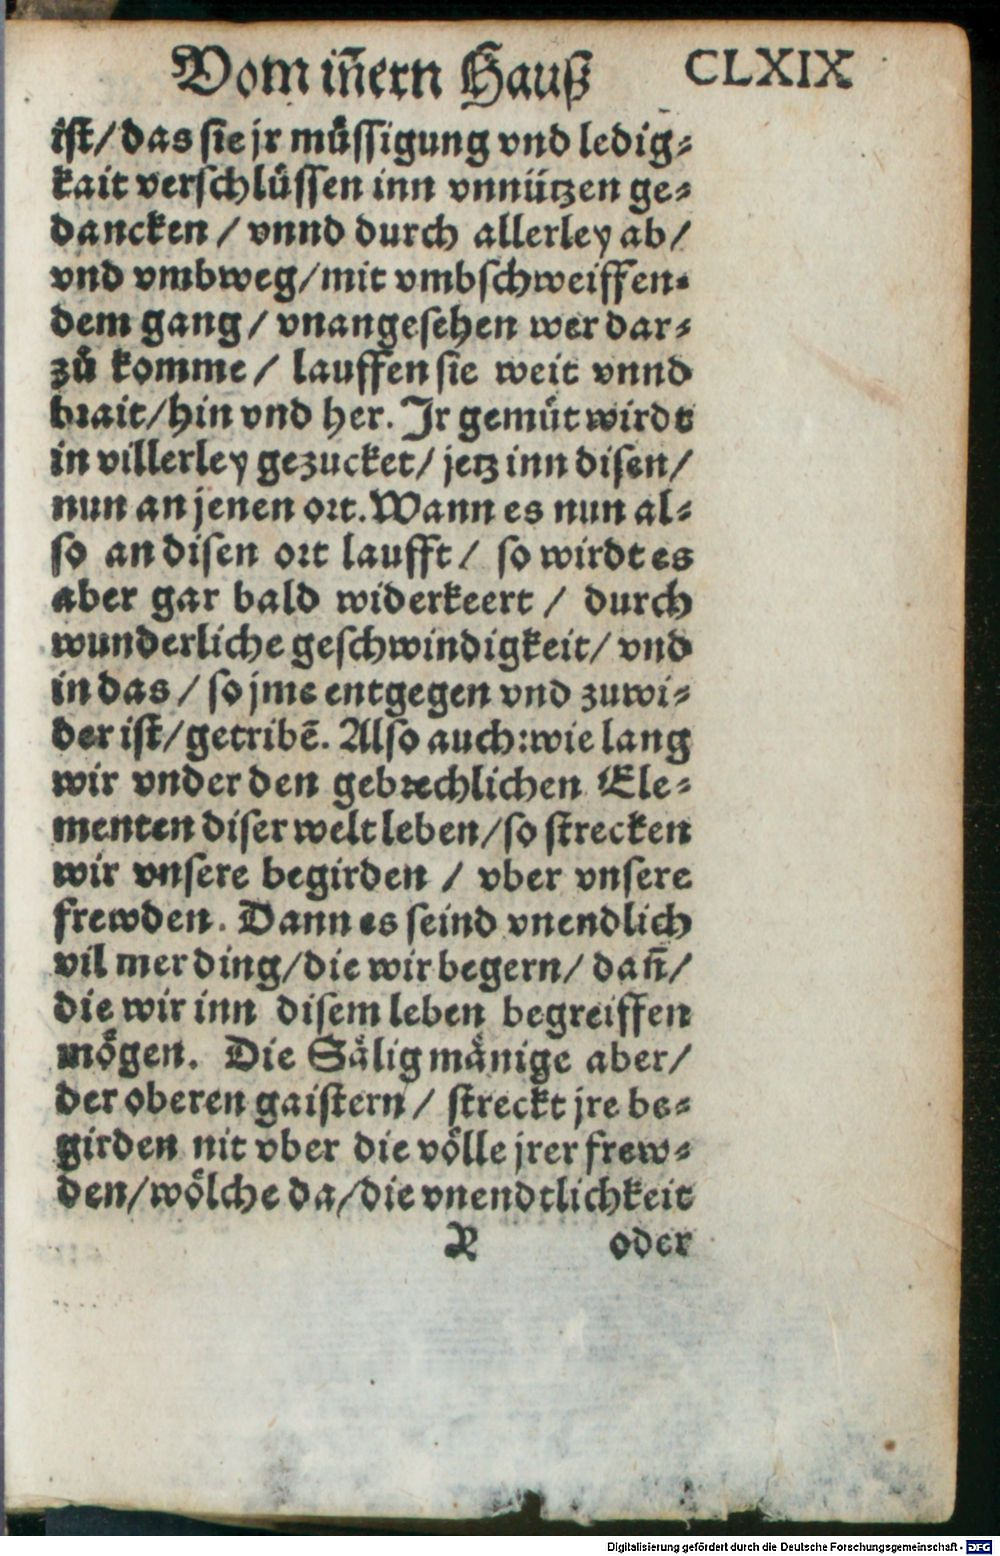 Vom iñern Hauß CLXIX
ist/ das sie jr müssigung vnd ledig-
kait verschlüssen inn vnnützen ge-
dancken / vnnd durch allerley ab/
vnd vmbweg/ mit vmbschweiffen-
dem gang/ vnangesehen wer dar-
zů komme/ lauffen sie weit vnnd
brait/ hin vnd her. Jr gemüt wirdt
in villerley gezucket/ jetz inn disen/
nun an jenen ort. Wann es nun al-
so an disen ort laufft/ so wirdt es
aber gar bald widerkeert / durch
wunderliche geschwindigkeit/ vnd
in das / so jme entgegen vnd zuwi-
der ist/ getribẽ. Also auch: wie lang
wir vnder den gebrechlichen Ele-
menten diser welt leben/ so strecken
wir vnsere begirden / vber vnsere
frewden. Dann es seind vnendlich
vil mer ding/ die wir begern/ dañ/
die wir inn disem leben begreiffen
mögen. Die Sälig mänige aber/
der oberen gaistern/ streckt jre be-
girden nit vber die völle jrer frew-
den/ wölche da/ die vnendtlichkeit
R oder
Digitalisierung gefördert durch die Deutsche Forschungsgemeinschaft - DFG